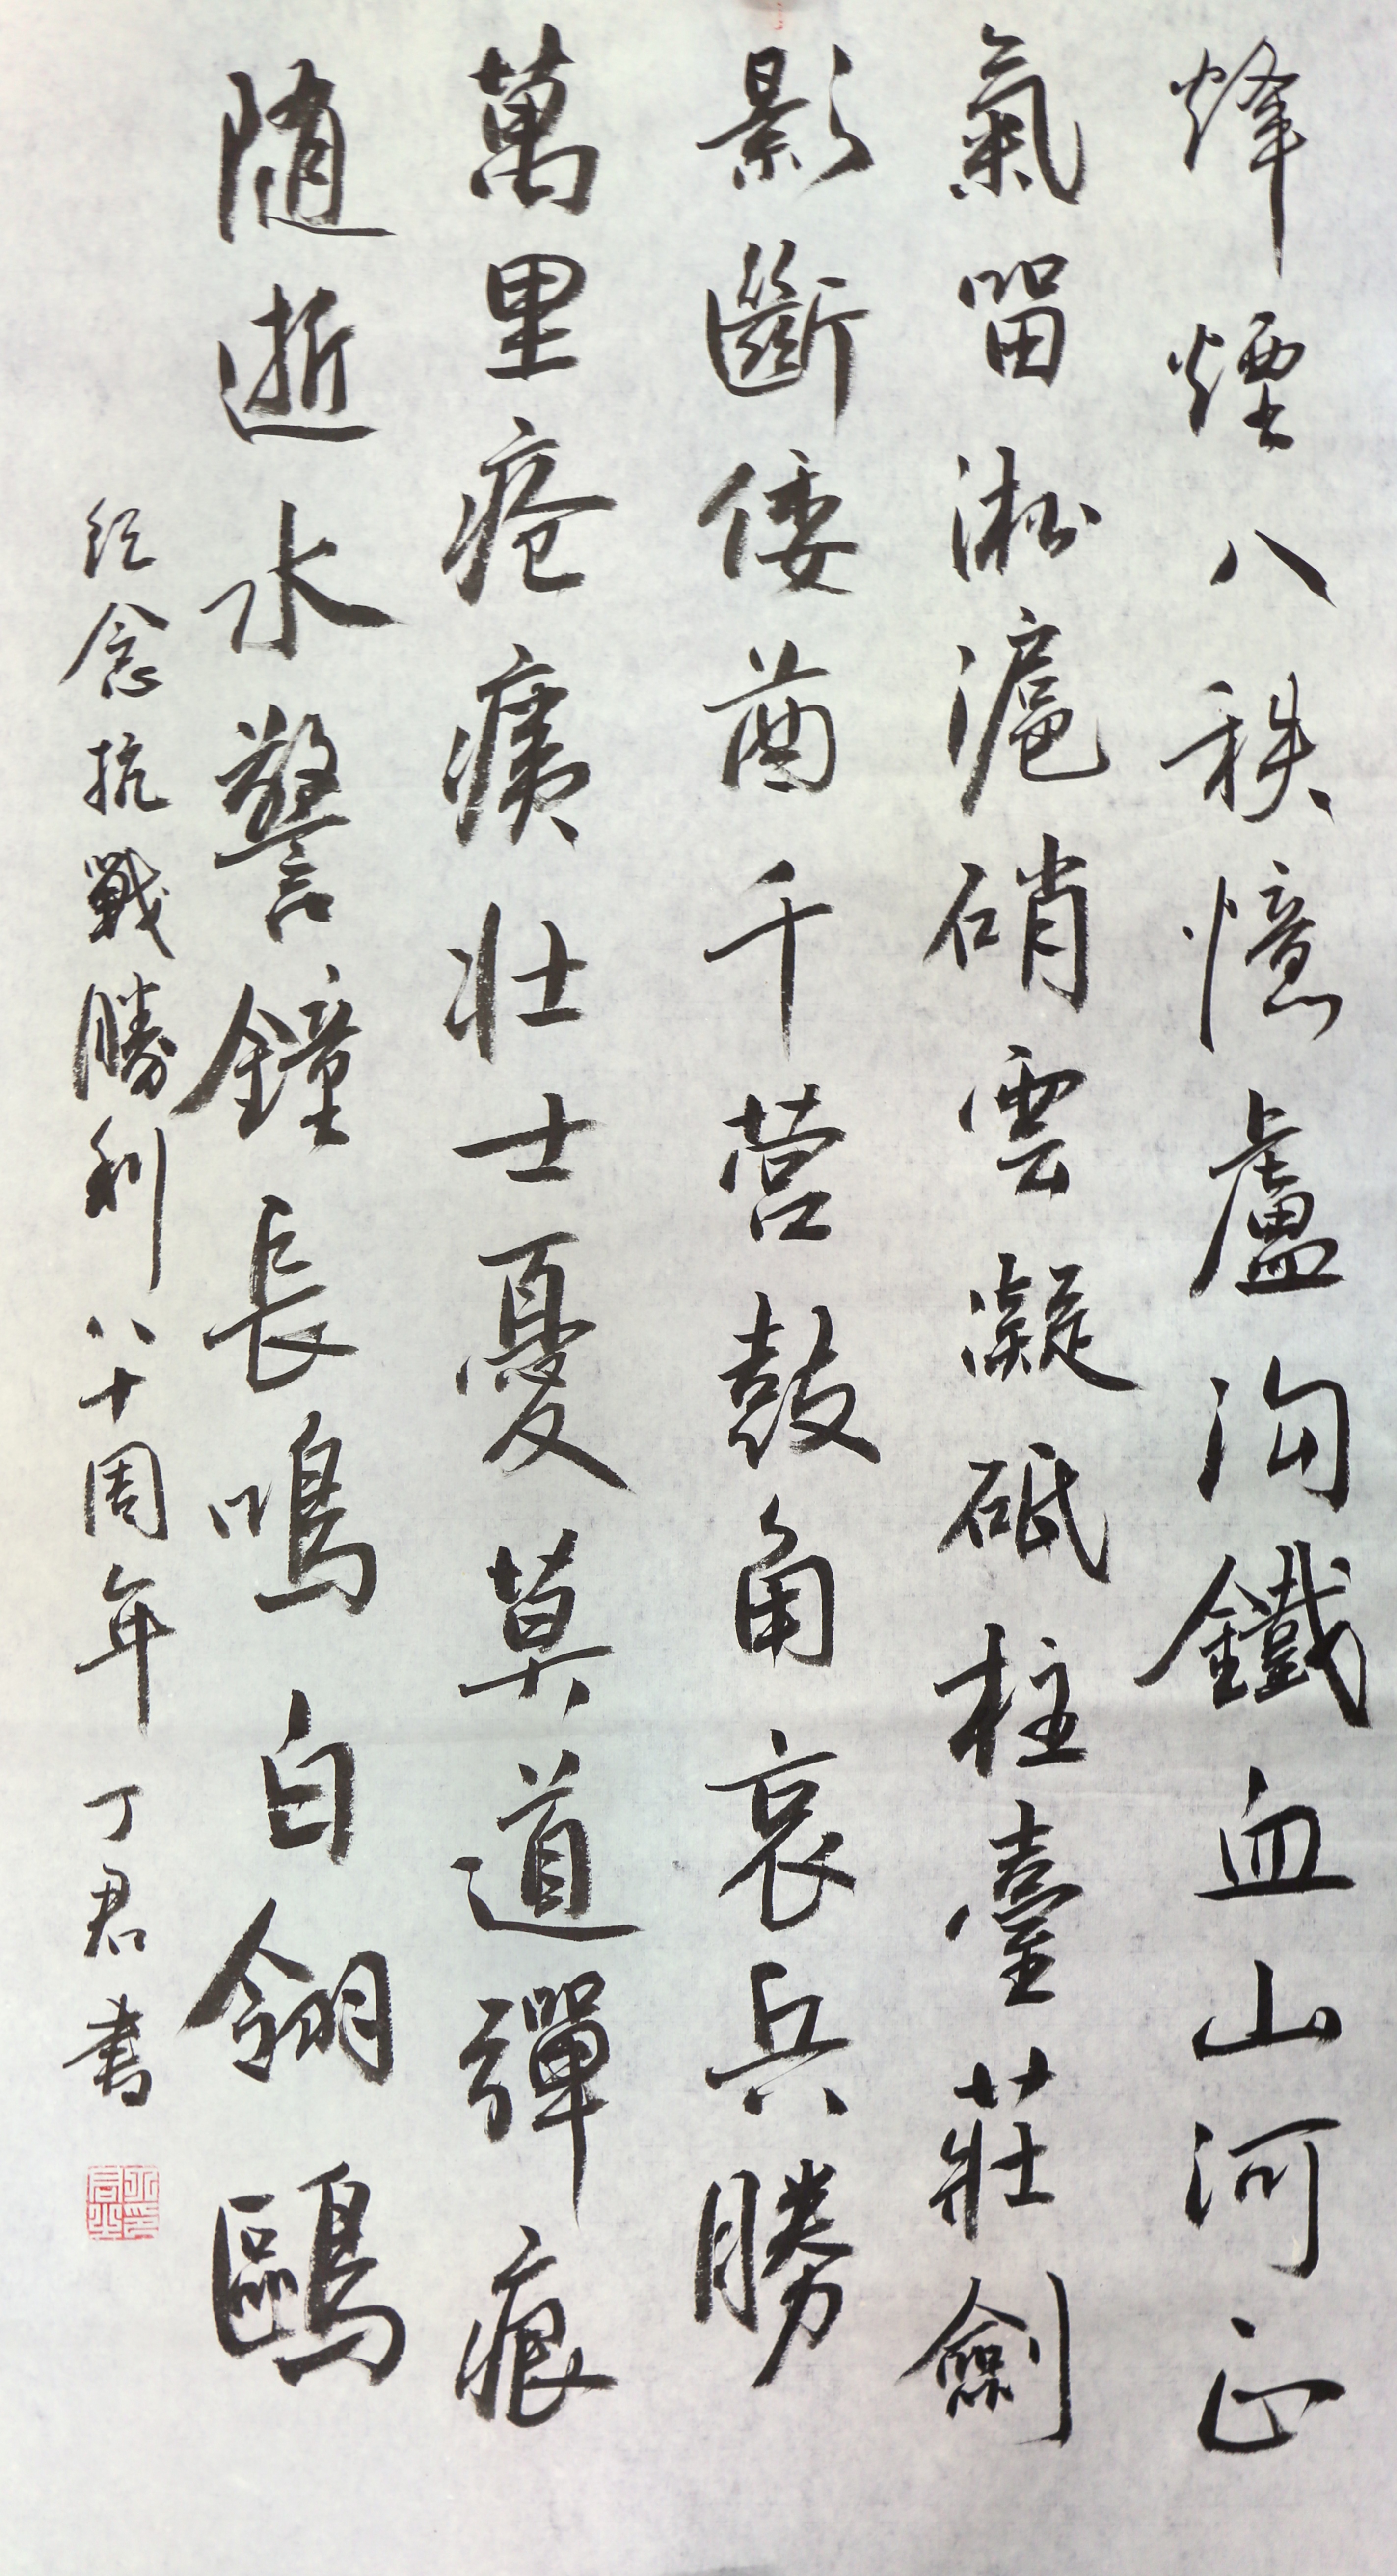 烽煙八秩憶盧沟鐵血山河正
氣留淞滬硝雲凝砥柱臺莊劍
影斷倭酋千营鼓角哀兵勝
萬里疮痍壮士憂莫道彈痕
随逝水警鐘長鳴白翎鷗
纪念抗戰勝利八十周年丁君书